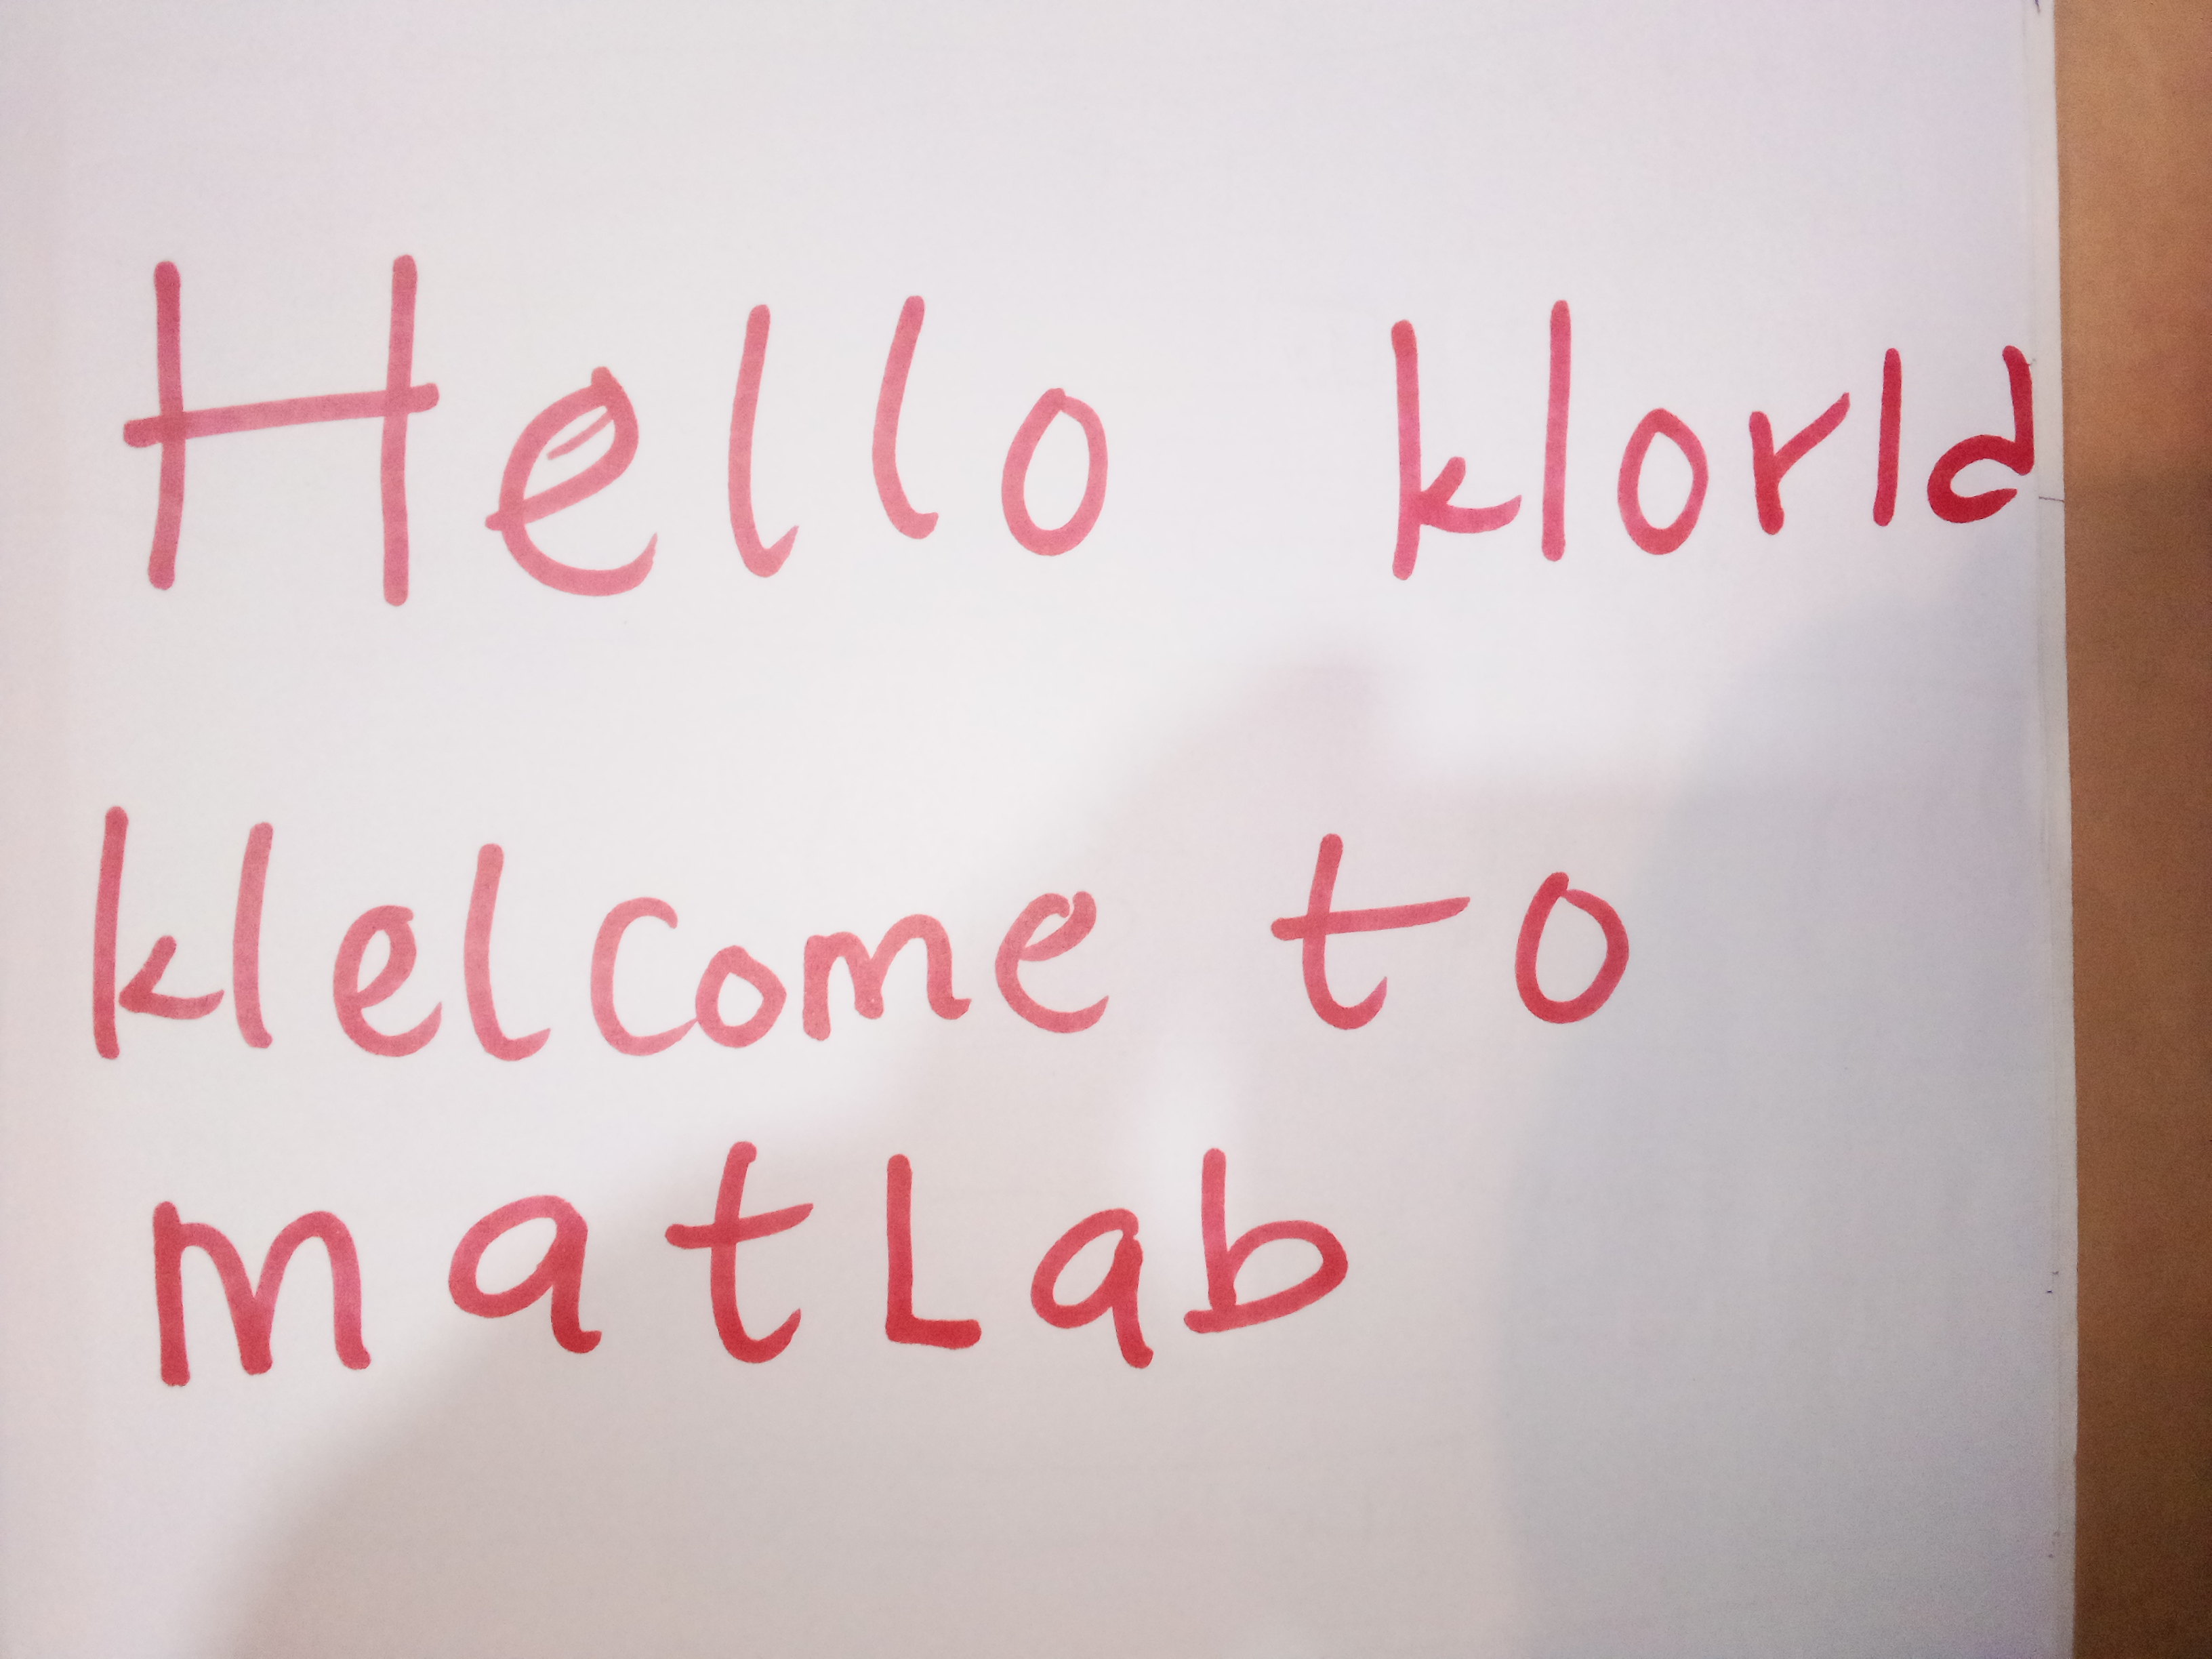 Hello klorld
klelcome to
matLab